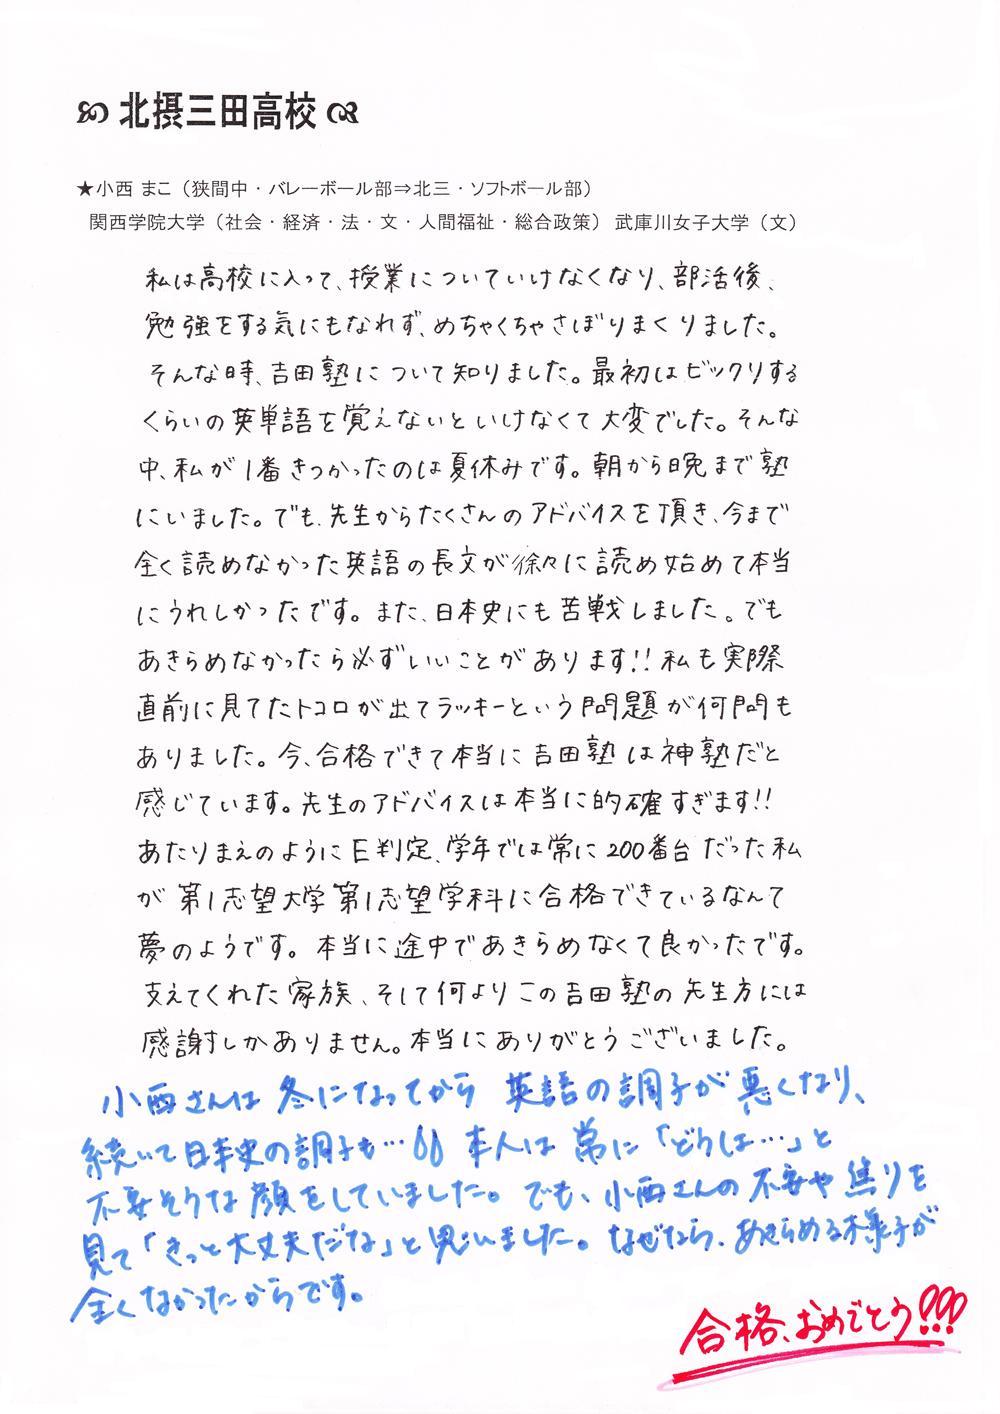 北摂三田高校
★小西 まこ（狭間中・バレーボール部⇒北三・ソフトボール部）
関西学院大学（社会・経済・法・文・人間福祉・総合政策） 武庫川女子大学（文）
私は高校に入って、授業についていけなくなり、部活後、
勉強をする気にもなれず、めちゃくちゃさぼりまくりました。
そんな時、吉田塾について知りました。最初はビックリする
くらいの英単語を覚えないといけなくて大変でした。そんな
中、私が1番きつかったのは夏休みです。朝から晩まで塾
にいました。でも、先生からたくさんのアドバイスを頂き、今まで
全く読めなかった英語の長文が徐々に読め始めて本当
にうれしかったです。また、日本史にも苦戦しました。でも
あきらめなかったら必ずいいことがあります!!私も実際
直前に見てたトコロが出てラッキーという問題が何問も
ありました。今、合格できて本当に吉田塾は神塾だと
感じています。先生のアドバイスは本当に的確すぎます!!
あたりまえのようにE判定、学年では常に200番台だった私
が第1志望大学第1志望学科に合格できているなんて
夢のようです。本当に途中であきらめなくて良かったです。
支えてくれた家族、そして何よりこの吉田塾の先生方には
感謝しかありません。本当にありがとうございました。
小西さんは冬になってから英語の調子が悪くなり、
続いて日本史の調子も… 本人は常に「どうしよ…」と
不安そうな顔をしていました。でも、小西さんの不安や焦りを
見て「きっと大丈夫だな」と思いました。なぜなら、あきらめる様子が
全くなかったからです。
合格、おめでとう!!!